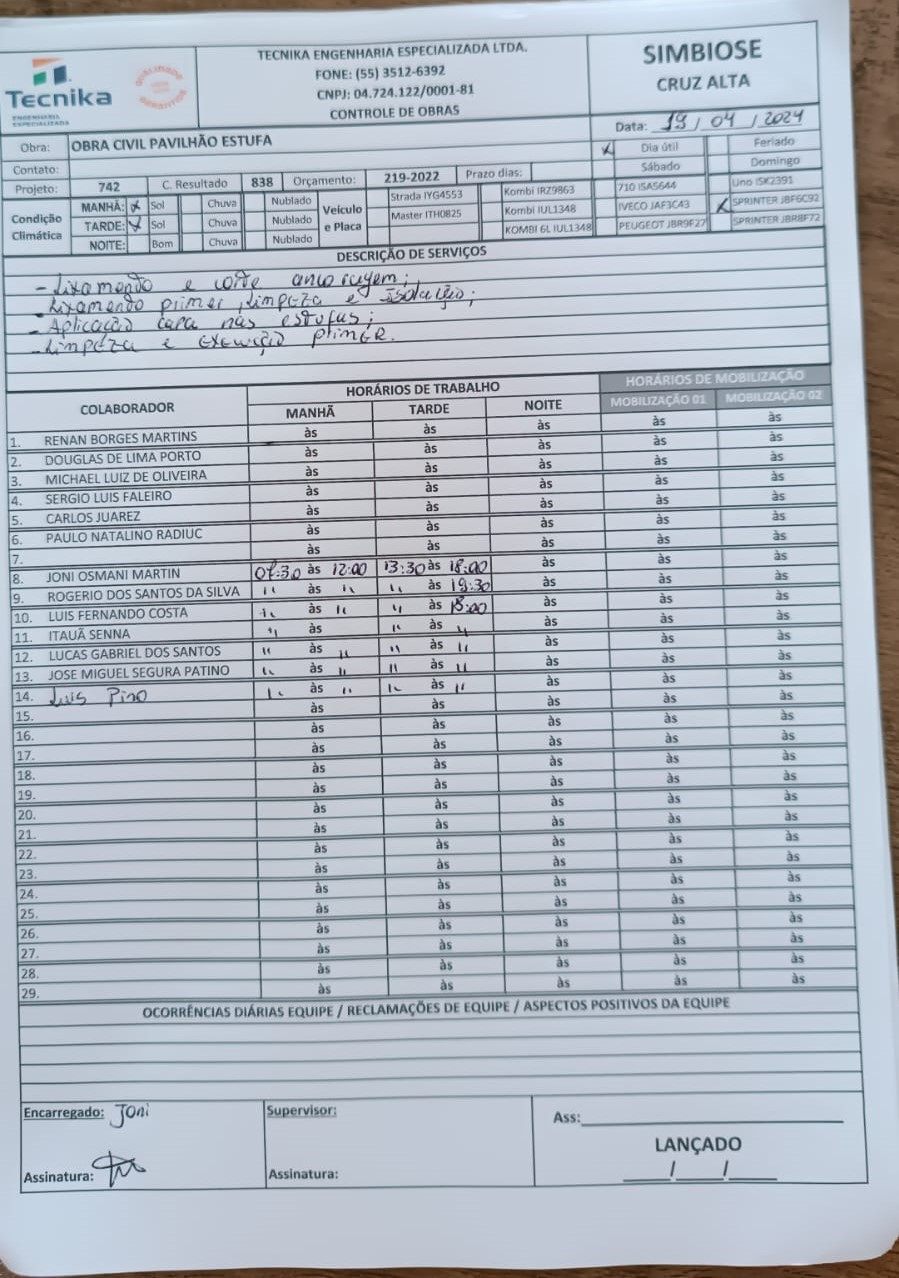 Tecnika
ENGENHARIA
ESPECIALIZADA
TECNIKA ENGENHARIA ESPECIALIZADA LTDA.
FONE: (55) 3512-6392
CNPJ: 04.724.122/0001-81
CONTROLE DE OBRAS
SIMBIOSE
CRUZ ALTA
Data: 19 / 04 / 2024
Obra: OBRA CIVIL PAVILHÃO ESTUFA
x Dia útil Feriado
Contato: Sábado Domingo
Projeto: 742 C. Resultado 838 Orçamento: 219-2022 Prazo dias:
Condição Climática
MANHÃ: x Sol Chuva Nublado
TARDE: x Sol Chuva Nublado
NOITE: Bom Chuva Nublado
Veículo e Placa
Strada IYG4553 Kombi IRZ9863 710 ISA5644 Uno ISK2391
Master ITH0825 Kombi IUL1348 IVECO JAF3C43 x SPRINTER JBF6C92
KOMBI 6L IUL1348 PEUGEOT JBR9F27 SPRINTER JBR8F72
DESCRIÇÃO DE SERVIÇOS
- Lixamento e corte ancoragem;
- Lixamento primer, limpeza e isolação;
- Aplicação capa nas estufas;
- Limpeza e execução primer.
COLABORADOR HORÁRIOS DE TRABALHO HORÁRIOS DE MOBILIZAÇÃO
MANHÃ TARDE NOITE MOBILIZAÇÃO 01 MOBILIZAÇÃO 02
1. RENAN BORGES MARTINS às às às às às
2. DOUGLAS DE LIMA PORTO às às às às às
3. MICHAEL LUIZ DE OLIVEIRA às às às às às
4. SERGIO LUIS FALEIRO às às às às às
5. CARLOS JUAREZ às às às às às
6. PAULO NATALINO RADIUC às às às às às
7. às às às às às
8. JONI OSMANI MARTIN 07:30 às 12:00 13:30 às 18:00 às às às
9. ROGERIO DOS SANTOS DA SILVA " às " " às 19:30 às às às
10. LUIS FERNANDO COSTA " às " " às 18:00 às às às
11. ITAUÃ SENNA " às " às " às às às
12. LUCAS GABRIEL DOS SANTOS " às " " às " às às às
13. JOSE MIGUEL SEGURA PATINO " às " " às " às às às
14. Luis Pino " às " " às " às às às
15. às às às às às
16. às às às às às
17. às às às às às
18. às às às às às
19. às às às às às
20. às às às às às
21. às às às às às
22. às às às às às
23. às às às às às
24. às às às às às
25. às às às às às
26. às às às às às
27. às às às às às
28. às às às às às
29. às às às às às
OCORRÊNCIAS DIÁRIAS EQUIPE / RECLAMAÇÕES DE EQUIPE / ASPECTOS POSITIVOS DA EQUIPE
Encarregado: Joni
Supervisor:
Ass:
LANÇADO
Assinatura:
Assinatura:
/ /